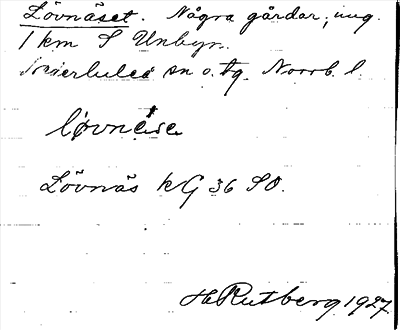 Lövnäset. Några gårdar, ung.
1 km S Unbyn.
Nederluleå sn o. tg. Norrb. l.
lövnẹse
Lövnäs kG 36 SO.
H Rutberg 1927